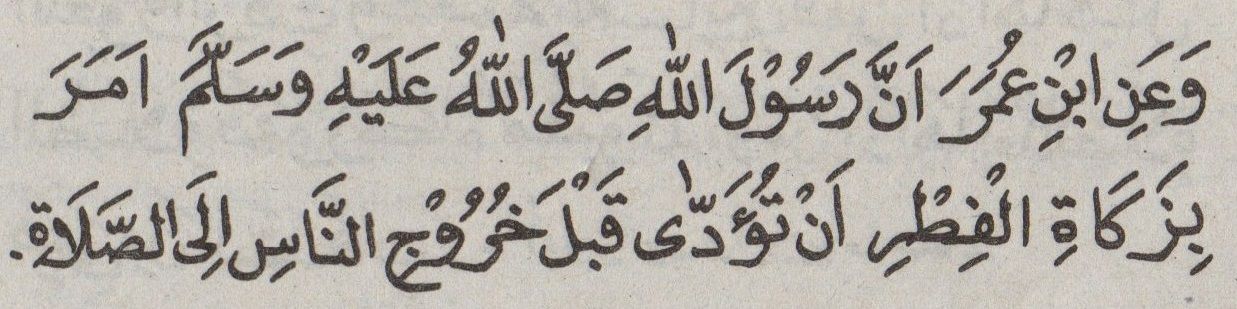 وَعَنِ ابْنِ عُمَرَ اَنَّ رَسُوْلَ اللّٰهِ صَلَّى اللّٰهُ عَلَيْهِ وَسَلَّمَ اَمَرَ
بِزَكَاةِ الْفِطْرِ اَنْ تُؤَدّٰى قَبْلَ خُرُوْجِ النَّاسِ اِلَى الصَّلَاةِ.